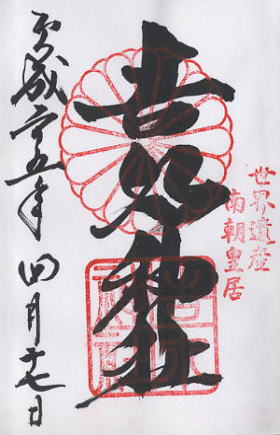 世界遺産
南朝皇居
吉水神社
平成二十五年
四月十七日